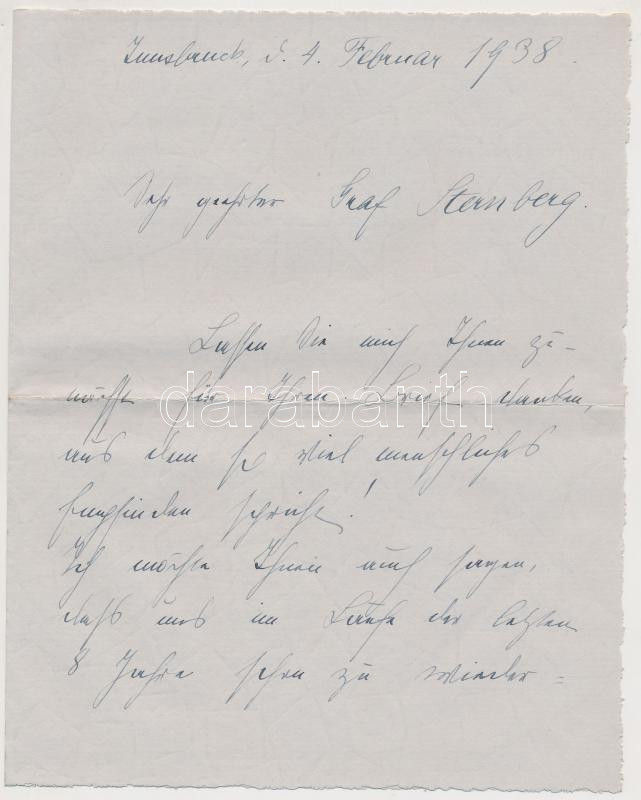 Innsbruck, d. 4. Februar 1938.
Sehr geehrter Graf Sternberg.
Lassen Sie mich Ihnen zu-
nächst für Ihren Brief danken,
aus dem so viel menschliches
Empfinden spricht!
Ich möchte Ihnen auch sagen,
daß uns im Laufe der letzten
8 Jahre schon zu wieder=
darabarth